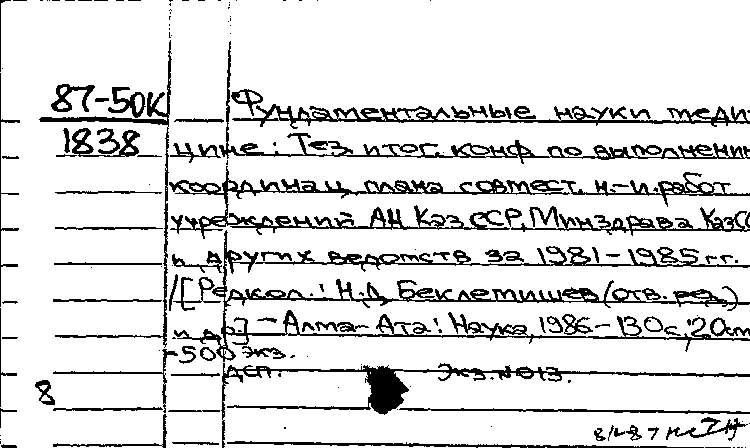 87-50К
1838
Фундаментальные науки меди-
цине: Тез. итог. конф по выполнению
координац. плана совмест. н.-и. работ
учреждений АН КазССР, Минздрава КазСС
и других ведомств за 1981-1985 гг.
/[Редкол.: Н.Д. Беклемишев (отв. ред.)
и др.] - Алма-Ата: Наука, 1986 - 130 с.; 20 см
-500 экз.
ДСП. Экз. № 013.
8